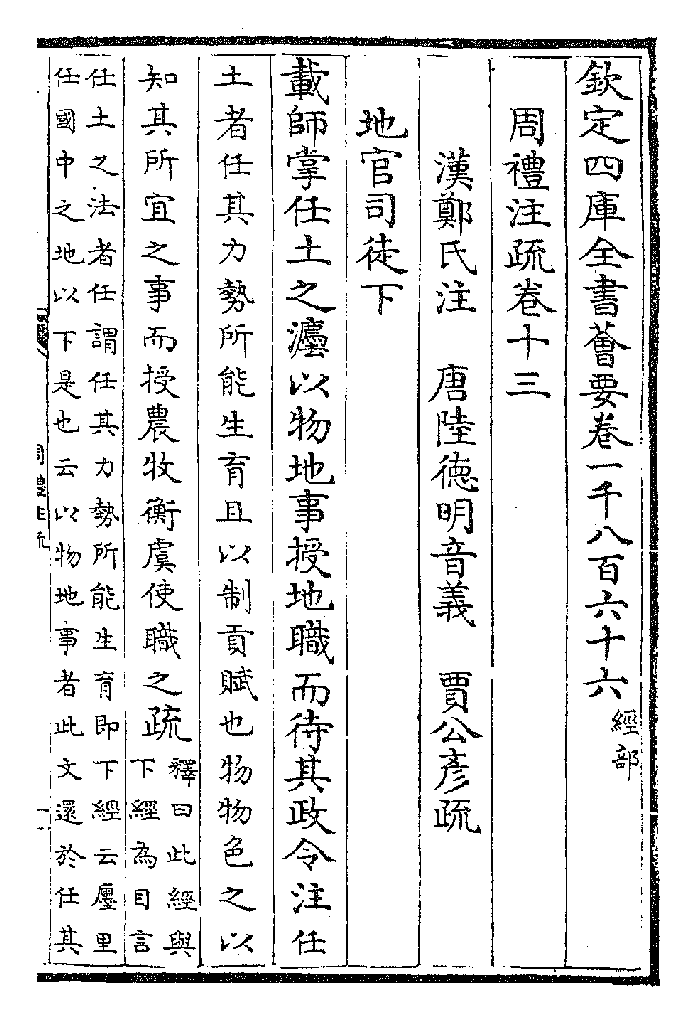 欽定四庫全書薈要卷一千八百六十六經部
周禮注疏卷十三
漢鄭氏注　唐陸德明音義　賈公彥疏
地官司徒下
載師掌任土之灋以物地事授地職而待其政令注任
土者任其力勢所能生育且以制貢賦也物物色之以
知其所宜之事而授農牧衡虞使職之疏釋曰此經與
下經為目言
任土之法者任謂任其力勢所能生育即下經云廛里
任國中之地以下是也云以物地事者此文還於任其
周禮注疏
一